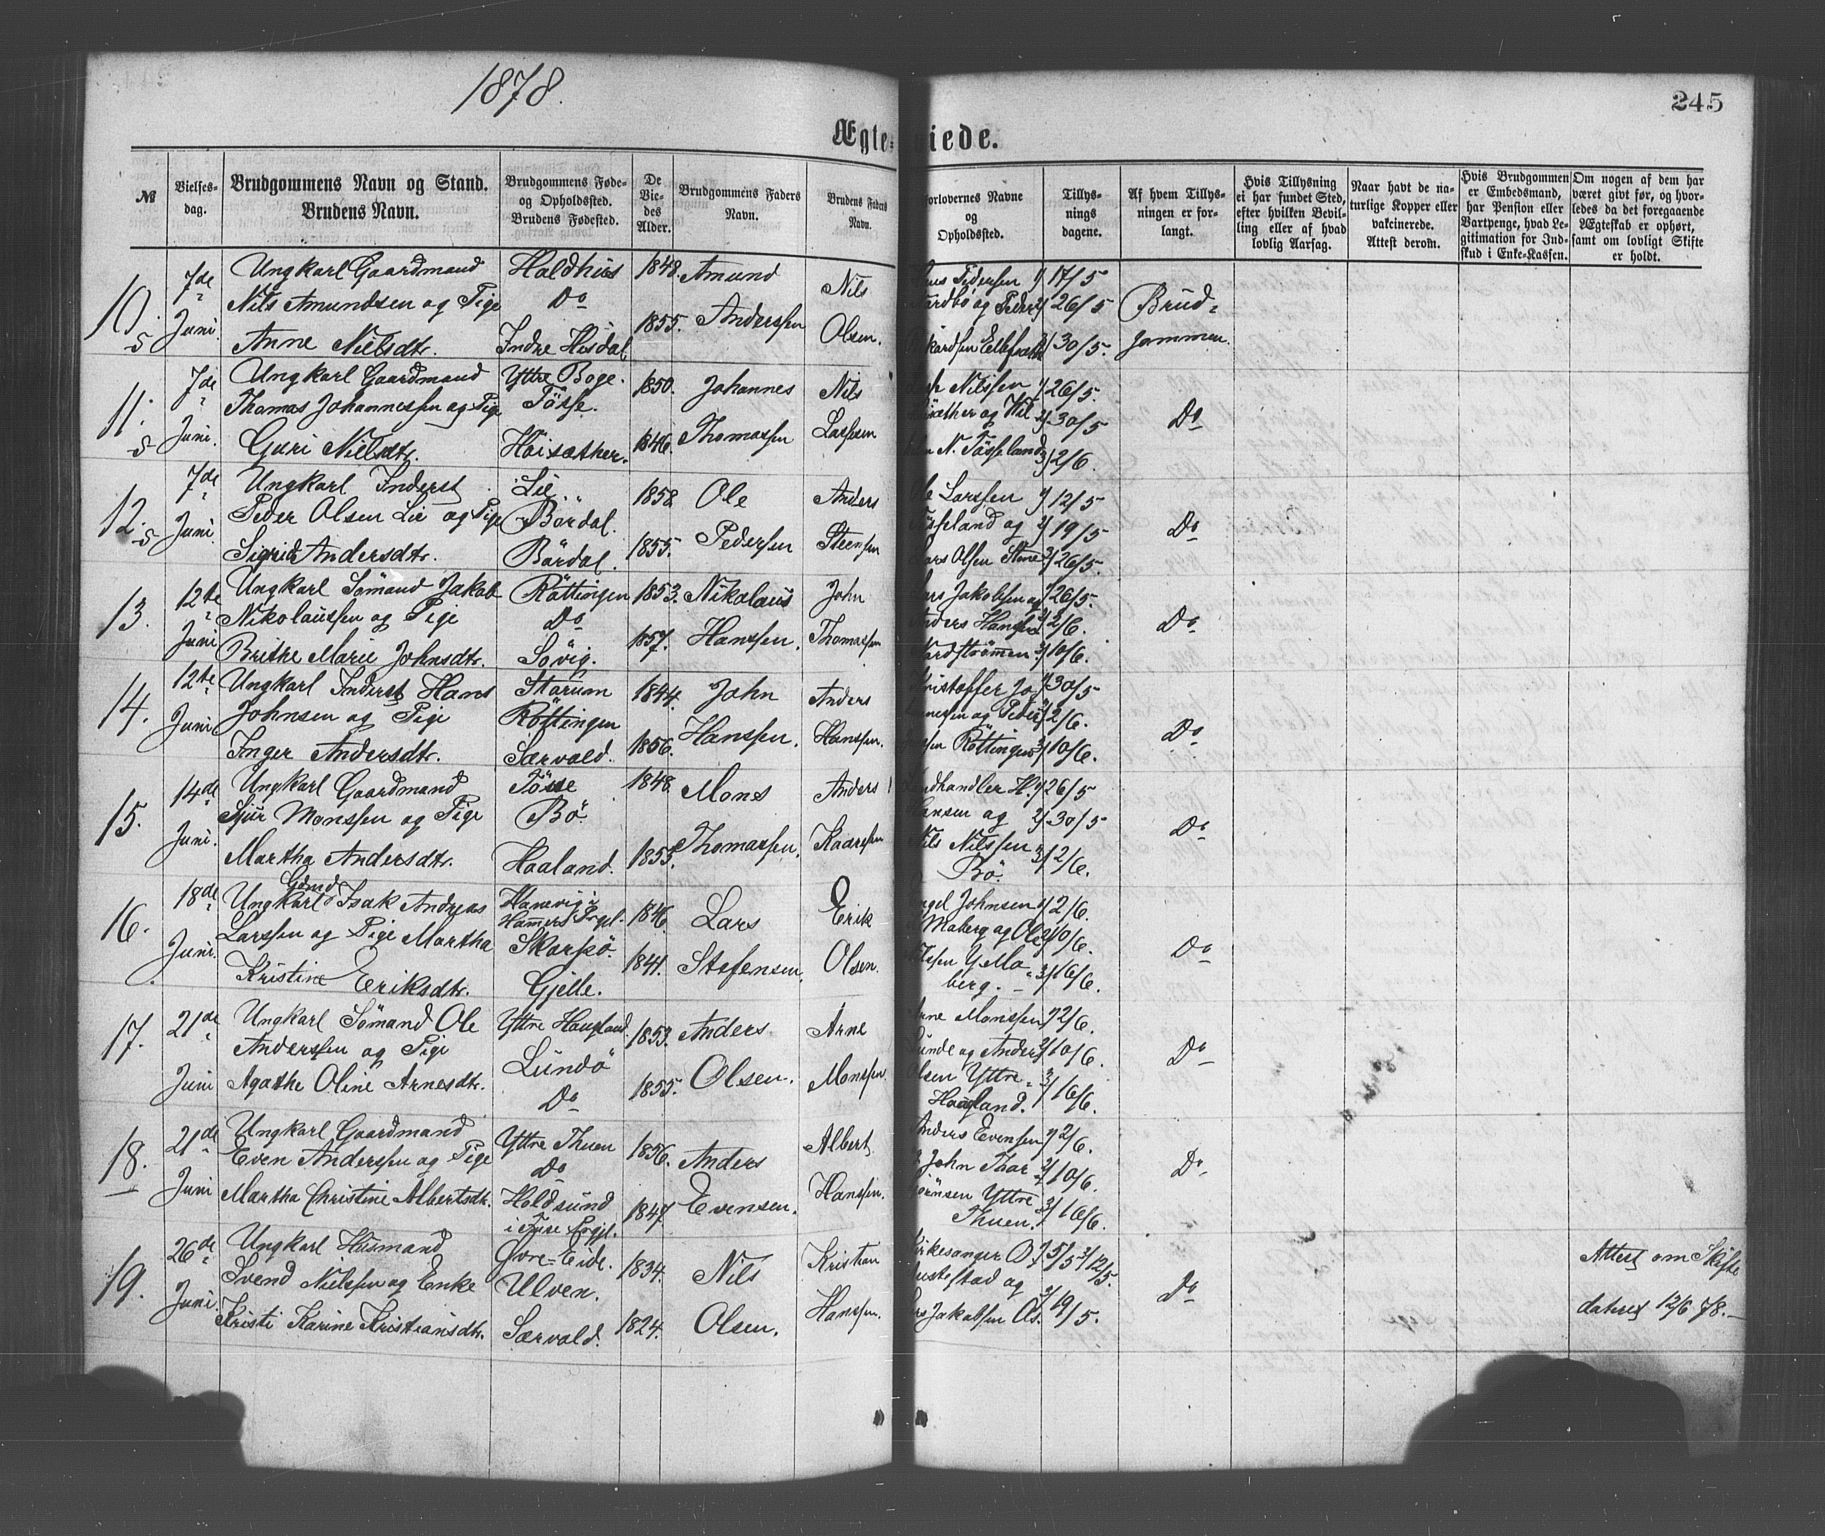 1878.
245
Ægte- viede.
№
Vielses-
dag.
Brudgommens Navn og Stand.
Brudens Navn.
Brudgommens Føde-
og Opholdssted.
Brudens Fødested.
De
Vie-
des
Alder.
Brudgommens Faders
Navn.
Brudens Faders
Navn.
Forlovernes Navne
og
Opholdssted.
Tillys-
nings
dagene.
Af hvem Tillys-
ningen er for-
langt.
Hvis Tillysning
ei har fundet Sted,
efter hvilken Bevil-
ling eller af hvad
lovlig Aarsag.
Naar havt de na-
turlige Kopper eller
vakcinerede.
Attest derom.
Hvis Brudgommen
er Embedsmand,
har Pension eller
Vartpenge, hvad Le-
gitimation for Ind-
skud i Enke-Kassen.
Om nogen af dem har
været gift før, og hvor-
ledes da det foregaaende
Ægteskab er ophørt,
samt om lovligt Skifte
er holdt.
10.
7de Juni.
Ungkarl Gaardmand
Nils Amundsen og Pige
Anne Nielsdtr.
Holdhus
Do
Indre Hisdal
1848.
1855.
Amund
Anderssen
Nils
Olsen.
Pedersen 1/ 17/5
og Peder 2/ 26/5
3/ 30/5.
Brud-
gommen.
11.
7de Juni.
Ungkarl Gaardmand
Thomas Johannessen og Pige
Guri Nielsdtr.
Yttre Boge.
Tösse.
Höisæther.
1850.
1846.
Johannes
Thomassen
Nils
Lassesen
Nilssen 1/ 26/5.
og Nil 2/ 30/5
N. Tösseland 3/ 2/6.
Do
12.
7de Juni.
Ungkarl Inderst
Peder Olsen Lie og Pige
Sigrid Andersdtr.
Lie
Bördal.
Bördal.
1858
1855.
Ole
Pederssen
Anders
Steensen
Ole Larssen 1/ 12/5
Tösseland og 2/ 19/5
Lars Olsen 3/ 26/5.
Do
13.
12te Juni
Ungkarl Sömand Jakob
Nikolaussen og Pige
Brithe Marie Johnsdtr.
Röttingen
Do
Sövig.
1853.
1857.
Nikolaus
Hanssen.
John
Thomassen
Jakobsen og 1/ 26/5.
Anders Hanssen 2/ 2/6.
Nordströmmen 3/ 10/6.
Do
14.
12te Juni
Ungkarl Inderst Hans
Johnsen og Pige
Inger Andersdtr.
Storum
Röttingen
Særvold.
1844.
1856.
John
Hanssen.
Anders
Hanssen.
Kristoffer Jo 1/ 30/5
og Peder 2/ 2/6.
Röttingen 3/ 10/6.
Do
15.
14de Juni.
Ungkarl Gaardmand
Sjur Monssen og Pige
Martha Andersdtr.
Tösse
Bö.
Haaland.
1848.
1855.
Mons
Thomassen.
Anders
Kaaressen
Landhandler H. 1/ 26/5
Hansen og 2/ 30/5
Nils Nilssen 3/ 2/6.
Bö.
Do
16.
18de Juni.
Gdmd
Ungkarl Isak Andreas
Larssen og Pige Martha
Kristine Eriksdtr.
Hanevig i
Hammers Prgl.
Skorpö.
Gjelle.
1846.
1841.
Lars
Stefensen
Erik
Olsen.
Johnsen 1/ 2/6.
Moberg og Ole 2/ 10/6.
Y. Mo- 3/ 16/6.
berg.
Do
17.
21de Juni
Ungkarl Sömand Ole
Anderssen og Pige
Agathe Oline Arnesdtr.
Yttre Haugland
Lundö
Do
1853.
1855.
Anders
Olsen.
Arne
Monssen
Arne Monssen 1/ 2/6.
og Anders 2/ 10/6.
Olsen Yttre 3/ 16/6.
Haugland.
Do
18.
21de Juni
Ungkarl Gaardmand
Even Anderssen og Pige
Martha Christine Albertsdtr.
Yttre Thuen
Do
Holdsund
i Fuse Prgl.
1856.
1847.
Anders
Evensen.
Albert
Hanssen.
Anders Evensen 1/ 2/6.
John Thor- 2/ 10/6.
Yttre 3/ 16/6.
Thuen.
Do
19.
26de Juni
Ungkarl Husmand
Svend Nielssen og Enke
Kristi Karine Kristiansdtr.
Övre-Eide.
Ulven.
Særvold.
1834.
1824.
Nils
Olsen.
Kristian
Hanssen.
Kirkesanger O. 1/ 5/5 2/ 12/5.
og 3/ 19/5.
Jakobsen Os.
Do
Attest om Skifte
dateret 12/6 78.